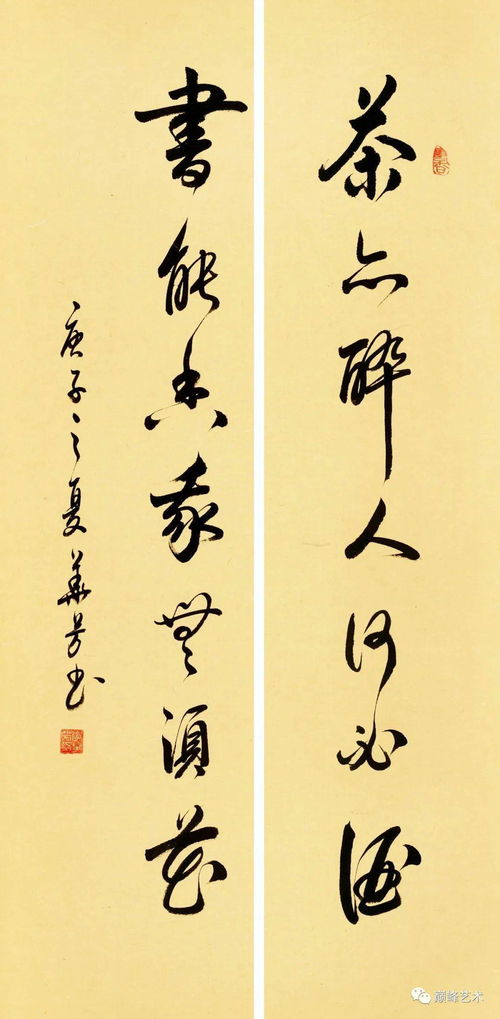 茶亦醉人何必酒
書能香我無須花
庚子之夏華芳书
巅峰艺术